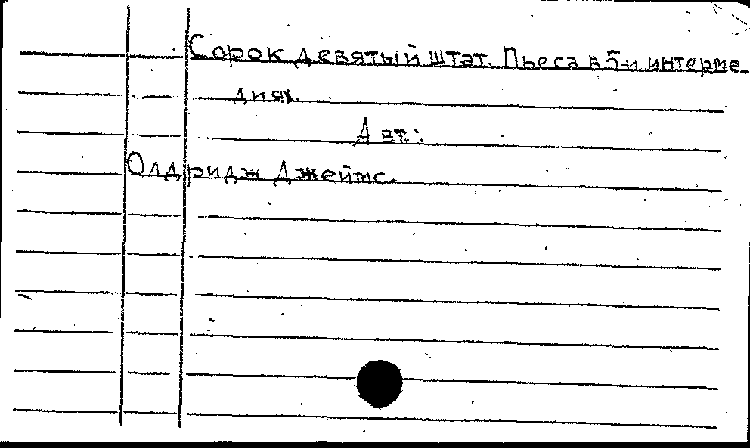 Сорок девятый штат. Пьеса в 5-и интерме
диях.
Авт.:
Олдридж Джеймс.